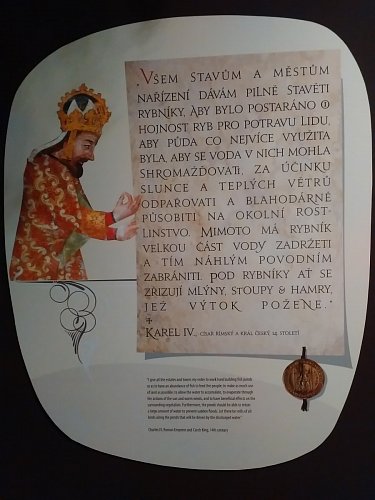 „Všem stavům a městům
nařízení dávám pilně stavěti
rybníky, aby bylo postaráno o
hojnost ryb pro potravu lidu,
aby půda co nejvíce využita
byla, aby se voda v nich mohla
shromažďovati, za účinku
slunce a teplých větrů
odpařovati a blahodárně
působiti na okolní rost-
linstvo. Mimoto má rybník
velkou část vody zadržeti
a tím náhlým povodním
zabrániti. Pod rybníky ať se
zřizují mlýny, stoupy & hamry,
jež výtok požene."
Karel IV., císař římský a král český 14. století
"I give all the estates and towns my order to work hard building fish ponds
so as to have an abundance of fish to feed the people; to make as much use
of land as possible; to allow the water to accumulate, to evaporate through
the actions of the sun and warm winds, and to have beneficial effects on the
surrounding vegetation. Furthermore, the ponds should be able to retain
a large amount of water to prevent sudden floods. Let there be mills of all
kinds along the ponds that will be driven by the discharged water."
Charles IV, Roman Emperor and Czech King, 14th century